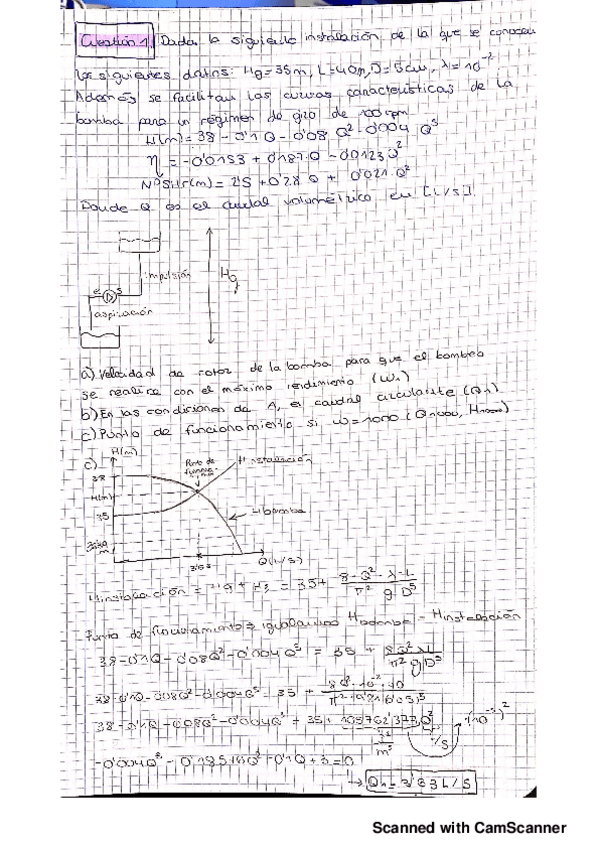 Cuestión 1. Dada la siguiente instalación de la que se conocen
los siguientes datos: Hg=35m, L=40m, D=5cm, λ=10⁻².
Además se facilitan las curvas características de la
bomba para un régimen de giro de rpm
H(m)=38-0'1Q-0'08 Q²-0'004 Q³
η=-0'0153+0'187Q-0'0123Q²
NPSHr(m)=2'5+0'28 Q+0'021 Q²
Donde Q es el caudal volumétrico en [L/s].
impulsión
Hg
e s
aspiración
a) Velocidad de rotor de la bomba para que el bombeo
se realice con el máximo rendimiento (ω₁)
b) En las condiciones de A, el caudal circulante (Q₁)
c) Punto de funcionamiento si ω=1000 (Q₁₀₀₀, H₁₀₀₀)
c) H(m)
Punto de
H instalación
38
H(m)
35
H bomba
Q(L/s)
Hinstalación = Hg + = 35+ 8·Q²·λ·L / π² g D⁵
Punto de funcionamiento ⇒ igualamos Hbomba = Hinstalación
38-0'1Q-0'08Q²-0'004Q³ = 35 + 8Q²λL / π²gD⁵
38-0'1Q-0'08Q²-0'004Q³ = 35 +
38-0'1Q-0'08Q²-0'004Q³ = 35+ 105762'377Q² (10⁻³)²
L/s
-0'004Q³-0'185 Q²-0'1Q+3=0